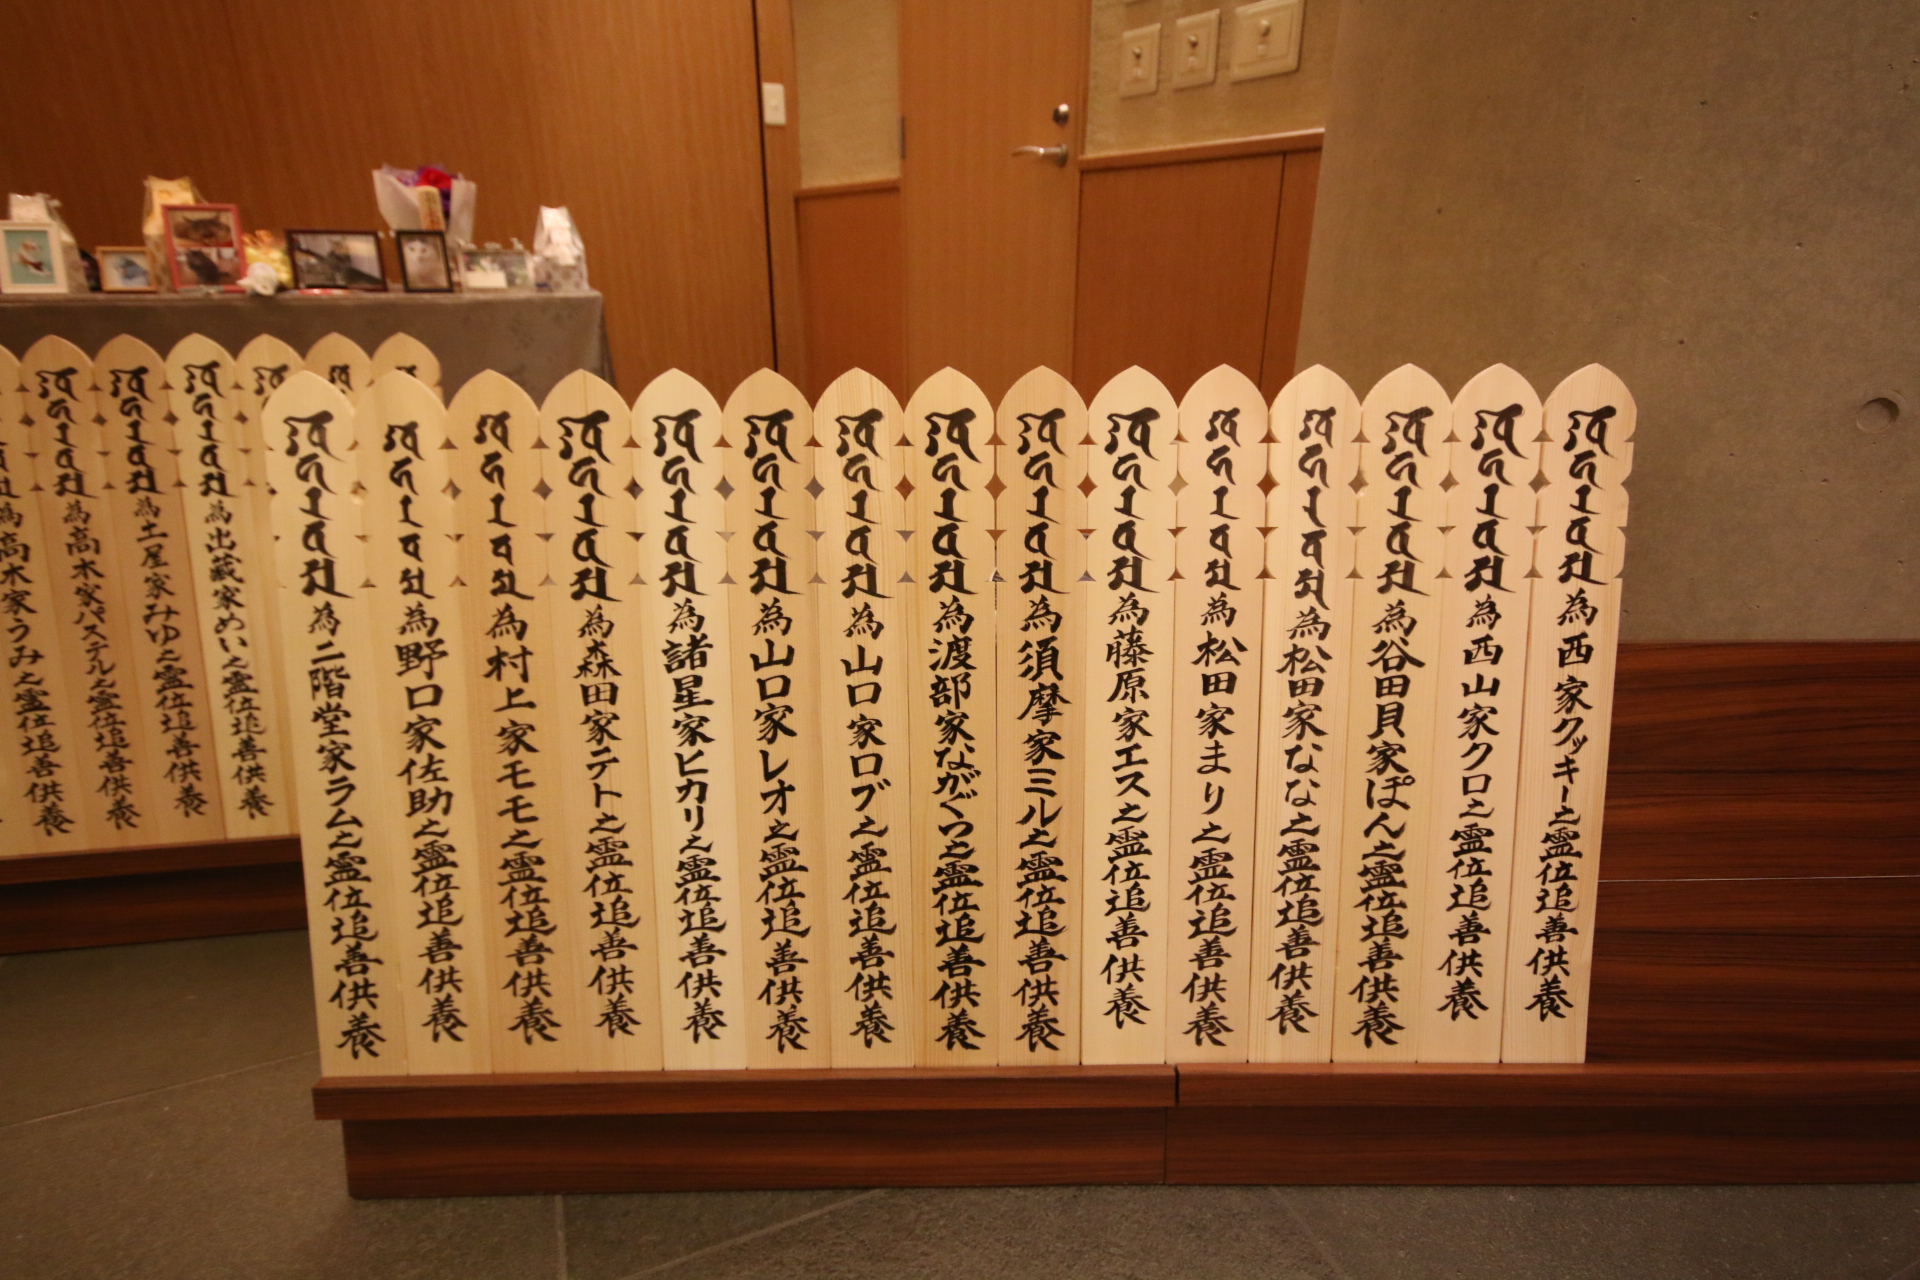 為西家クッキー之霊位追善供養
為西山家クロ之霊位追善供養
為谷田貝家ぽん之霊位追善供養
為松田家なな之霊位追善供養
為松田家まり之霊位追善供養
為藤原家エス之霊位追善供養
為須摩家ミル之霊位追善供養
為渡部家ながぐつ之霊位追善供養
為山口家ロブ之霊位追善供養
為山口家レオ之霊位追善供養
為諸星家ヒカリ之霊位追善供養
為森田家テト之霊位追善供養
為村上家モモ之霊位追善供養
為野口家佐助之霊位追善供養
為二階堂家ラム之霊位追善供養
為出蔵家めい之霊位追善供養
為土屋家みゆ之霊位追善供養
為高木家パステル之霊位追善供養
為高木家うみ之霊位追善供養